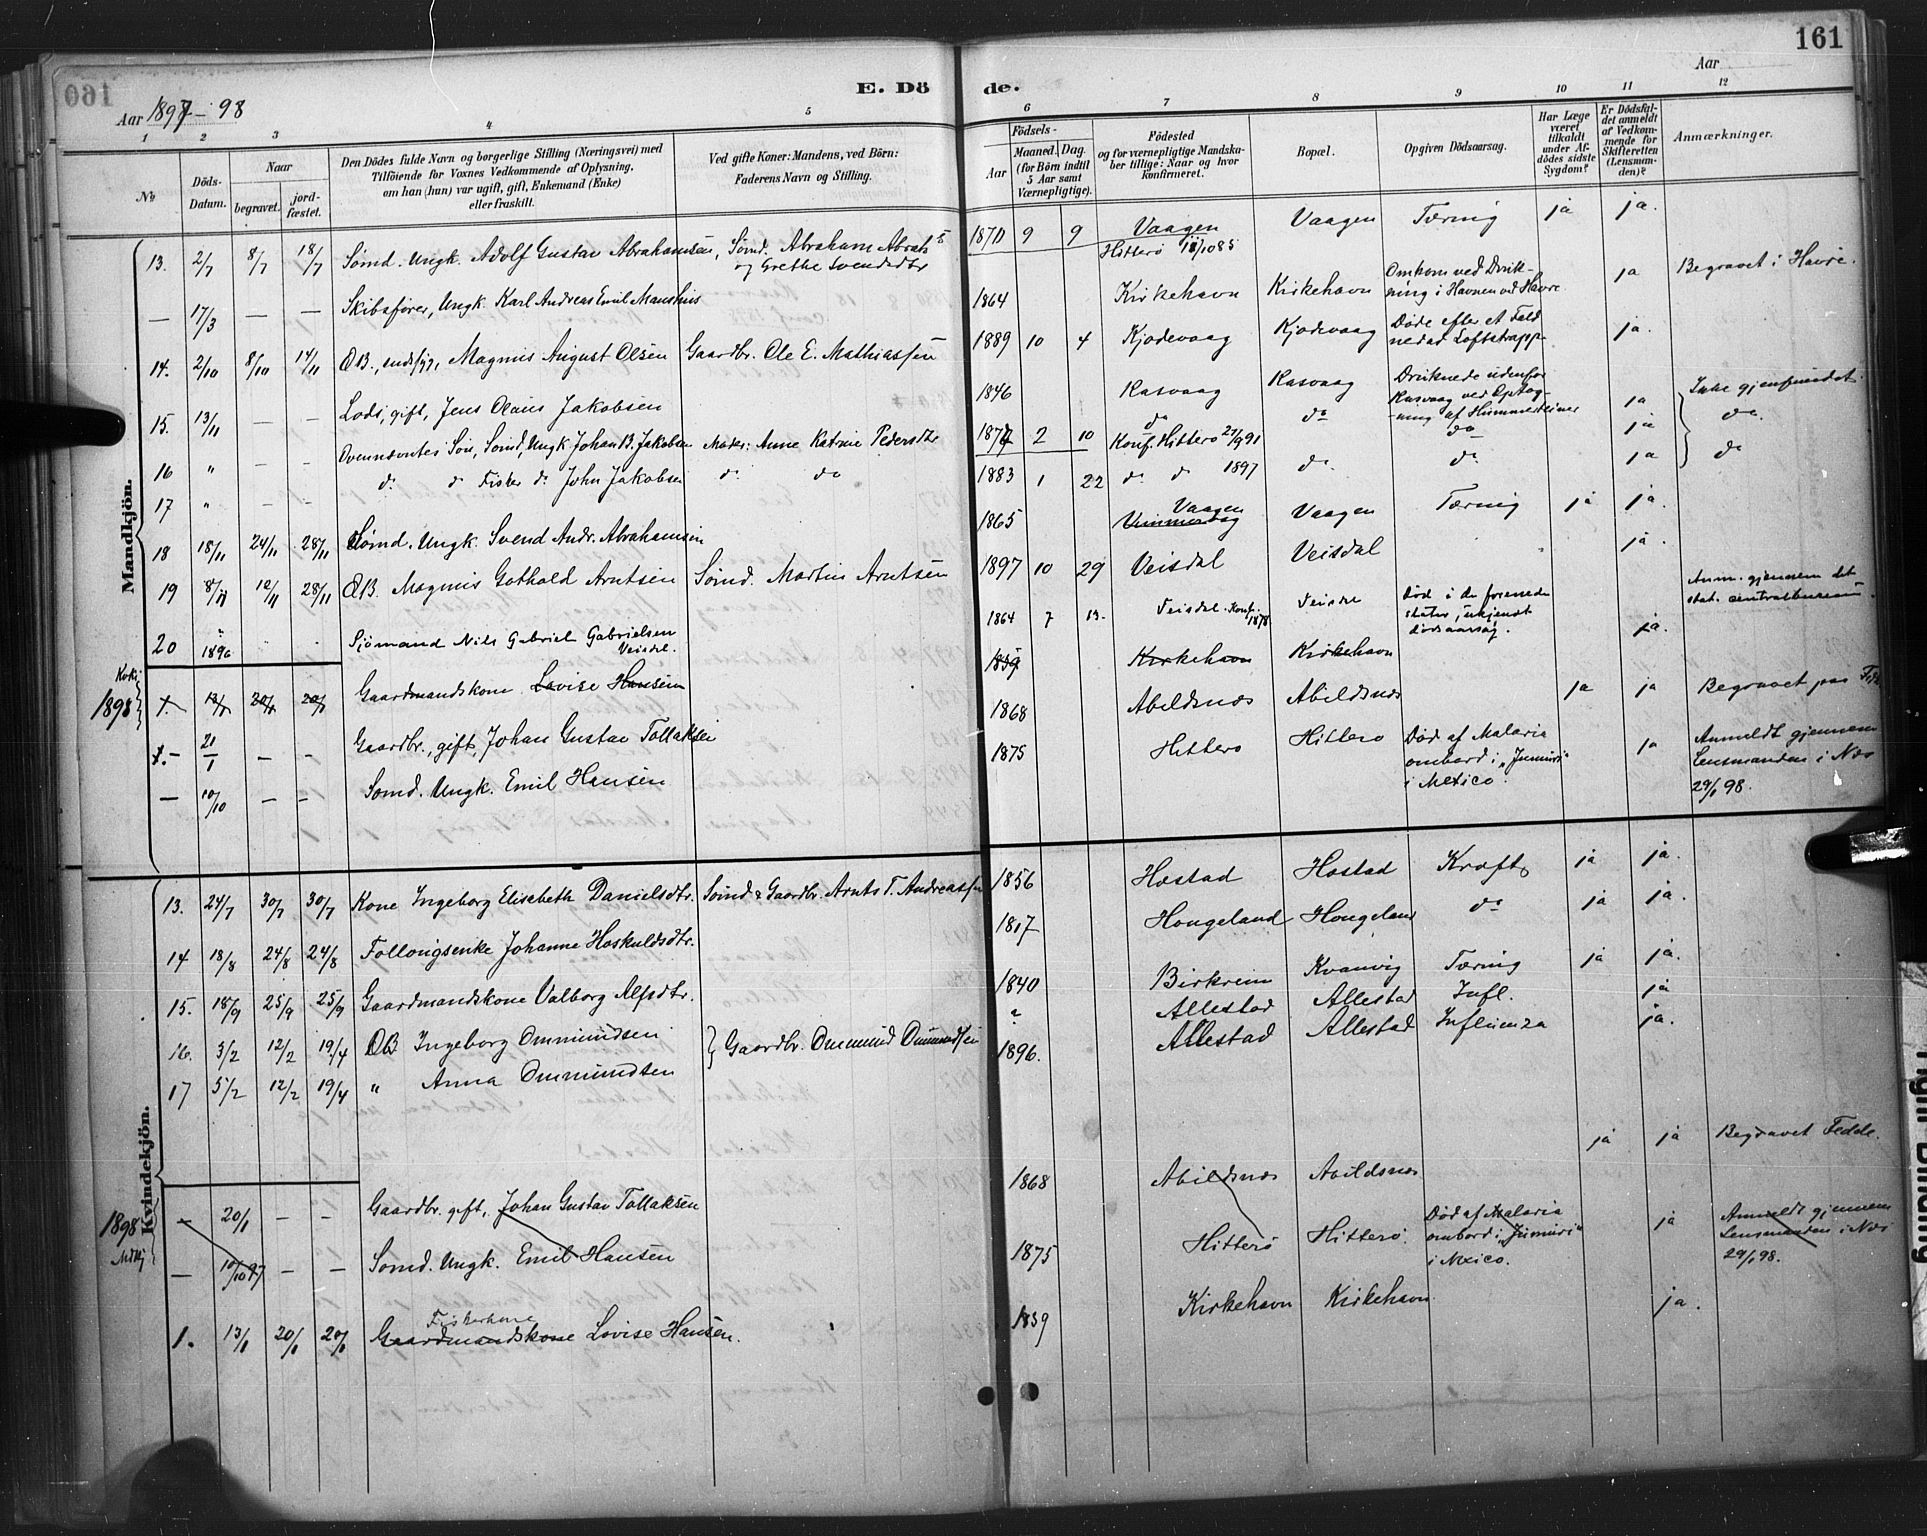 161
Aar 1897 - 98
E. Dö de.
Aar
1 2 3 4 5 6 7 8 9 10 11 12
No
Döds-Datum.
Naar
begravet.
jord-fæstet.
Den Dödes fulde Navn og borgerlige Stilling (Næringsvei) med
Tilföiende for Voxnes Vedkommende af Oplysning,
om han (hun) var ugift, gift, Enkemand (Enke)
eller fraskilt.
Ved gifte Koner: Mandens, ved Börn:
Faderens Navn og Stilling.
Födsels-
Aar
Maaned. Dag.
(for Börn indtil
5 Aar samt
Værnepligtige).
Födested
og for værnepligtige Mandska-
ber tillige: Naar og hvor
konfirmeret.
Bopæl.
Opgiven Dödsaarsag.
Har Læge
været
tilkaldt
under Af-
dödes sidste
Sygdom?
Er Dödsfal-
det anmeldt
af Vedkom-
mende for
Skifteretten
(Lensman-
den)?
Anmærkninger.
Mandkjön.
13. 2/7 8/7 18/7 Sømd. Ungk. Adolf Gustav Abrahamsen, Sømd. Abraham Abrahs og Grethe Svendsdtr 1870 9 9 Vaagen Hitterø 18/10 85 Vaagen Tæring ja ja.
— 17/3 — — Skibsfører, Ungk. Karl Andreas Emil 1864 Kirkehavn Kirkehavn Omkom ved Drukning i Havnen ved Havre ja Begravet i Havre.
14. 2/10 8/10 14/11 ÆB., Magnus August Olsen Gaardbr. Ole E. Mathiassen 1889 10 4 Kjødevaag Kjødevaag Døde efter et Fald nedad Loftstrapp. ja.
15. 13/11 — — Lods, gift, Jens Olaus Jakobsen 1846 Rasvaag Rasvaag Druknede udenfor Rasvaag ved Optagning af Hummerteiner ja Ikke gjenfundet.
16 " — — Ovennævntes Søn, Sømd, Ungk Johan B. Jakobsen Moder: Anne Katrine Pedersdtr 1877 2 10 do Konf. Hitterø 27/9 91 do do ja do.
17 " — — do. do Fisker do John Jakobsen do. do 1883 1 22 do do 1897 do. do. ja do
18 18/11 24/11 28/11 Sømd. Ungk. Svend Andr. Abrahamsen 1865 Vaagen Vaagen Tæring ja ja.
19 8/11 12/11 28/11 ÆB. Magnus Gothold Arntsen Sømd. Martin Arntsen 1897 10 29 Veisdal Veisdal ja.
20 1896 Sjömand Nils Gabriel Gabrielsen Veisdal. 1864 7 13. Veisdal. Konf. 1878 Veisdal död i de forenede stater, ukjendt dödsaarsag. ja. Anm. gjennem det stat. centralbureau.
1898
1. 13/1 20/1 20/1 Gaardmandskone Lovise Hansen 1859 Kirkehavn Kirkehavn
— 21/1 — — Gaardbr., gift, Johan Gustav Tollaksen 1868 Abildsnæs Abildsnæs ja ja Begravet paa
— 10/10 — — Sømd. Ungk. Emil Hansen 1875 Hitterø Hitterø Død af Malaria ombord i „Jumuri" i Mexico. ja Anmeldt gjennem Lensmanden i Næs 29/1 98.
Kvindekjön.
13. 24/7 30/7 30/7 Kone Ingeborg Elisabeth Danielsdtr. Sømd & Gaardbr. Arnts T. Andreassen 1856 Hæstad Hæstad Kræft ja ja.
14 18/8 24/8 24/8 Føllougsenke Johanne Hoskuldsdtr. 1817 Hougeland Hougeland do ja ja.
15. 18/9 25/9 25/9 Gaardmandskone Valborg Alfsdtr. 1840 Birkrem Kvanvig Tæring ja ja.
16. 3/2 12/2 19/4 ÆB Ingeborg Ommundsen } Gaardbr. Ommund Ommundsen " Allestad Allestad Infl. ja
17 5/2 12/2 19/4 " Anna Ommundsen 1896. Allestad Allestad Influenza ja.
1898
— 20/1 — — Gaardbr. gift, Johan Gustav Tollaksen 1868 Abildsnæs Abildsnæs ja ja Begravet Fedde.
— 10/10 97 — — Sømd. Ungk. Emil Hansen 1875 Hitterø Hitterø. Død af Malaria ombord i „Jumuri" i Mexico. ja Anmeldt gjennem Lensmanden i Næs 29/1 98.
1. 13/1 20/1 20/1 Gaardmandskone Fiskerkone Lovise Hansen. 1839 Kirkehavn Kirkehavn. ja.